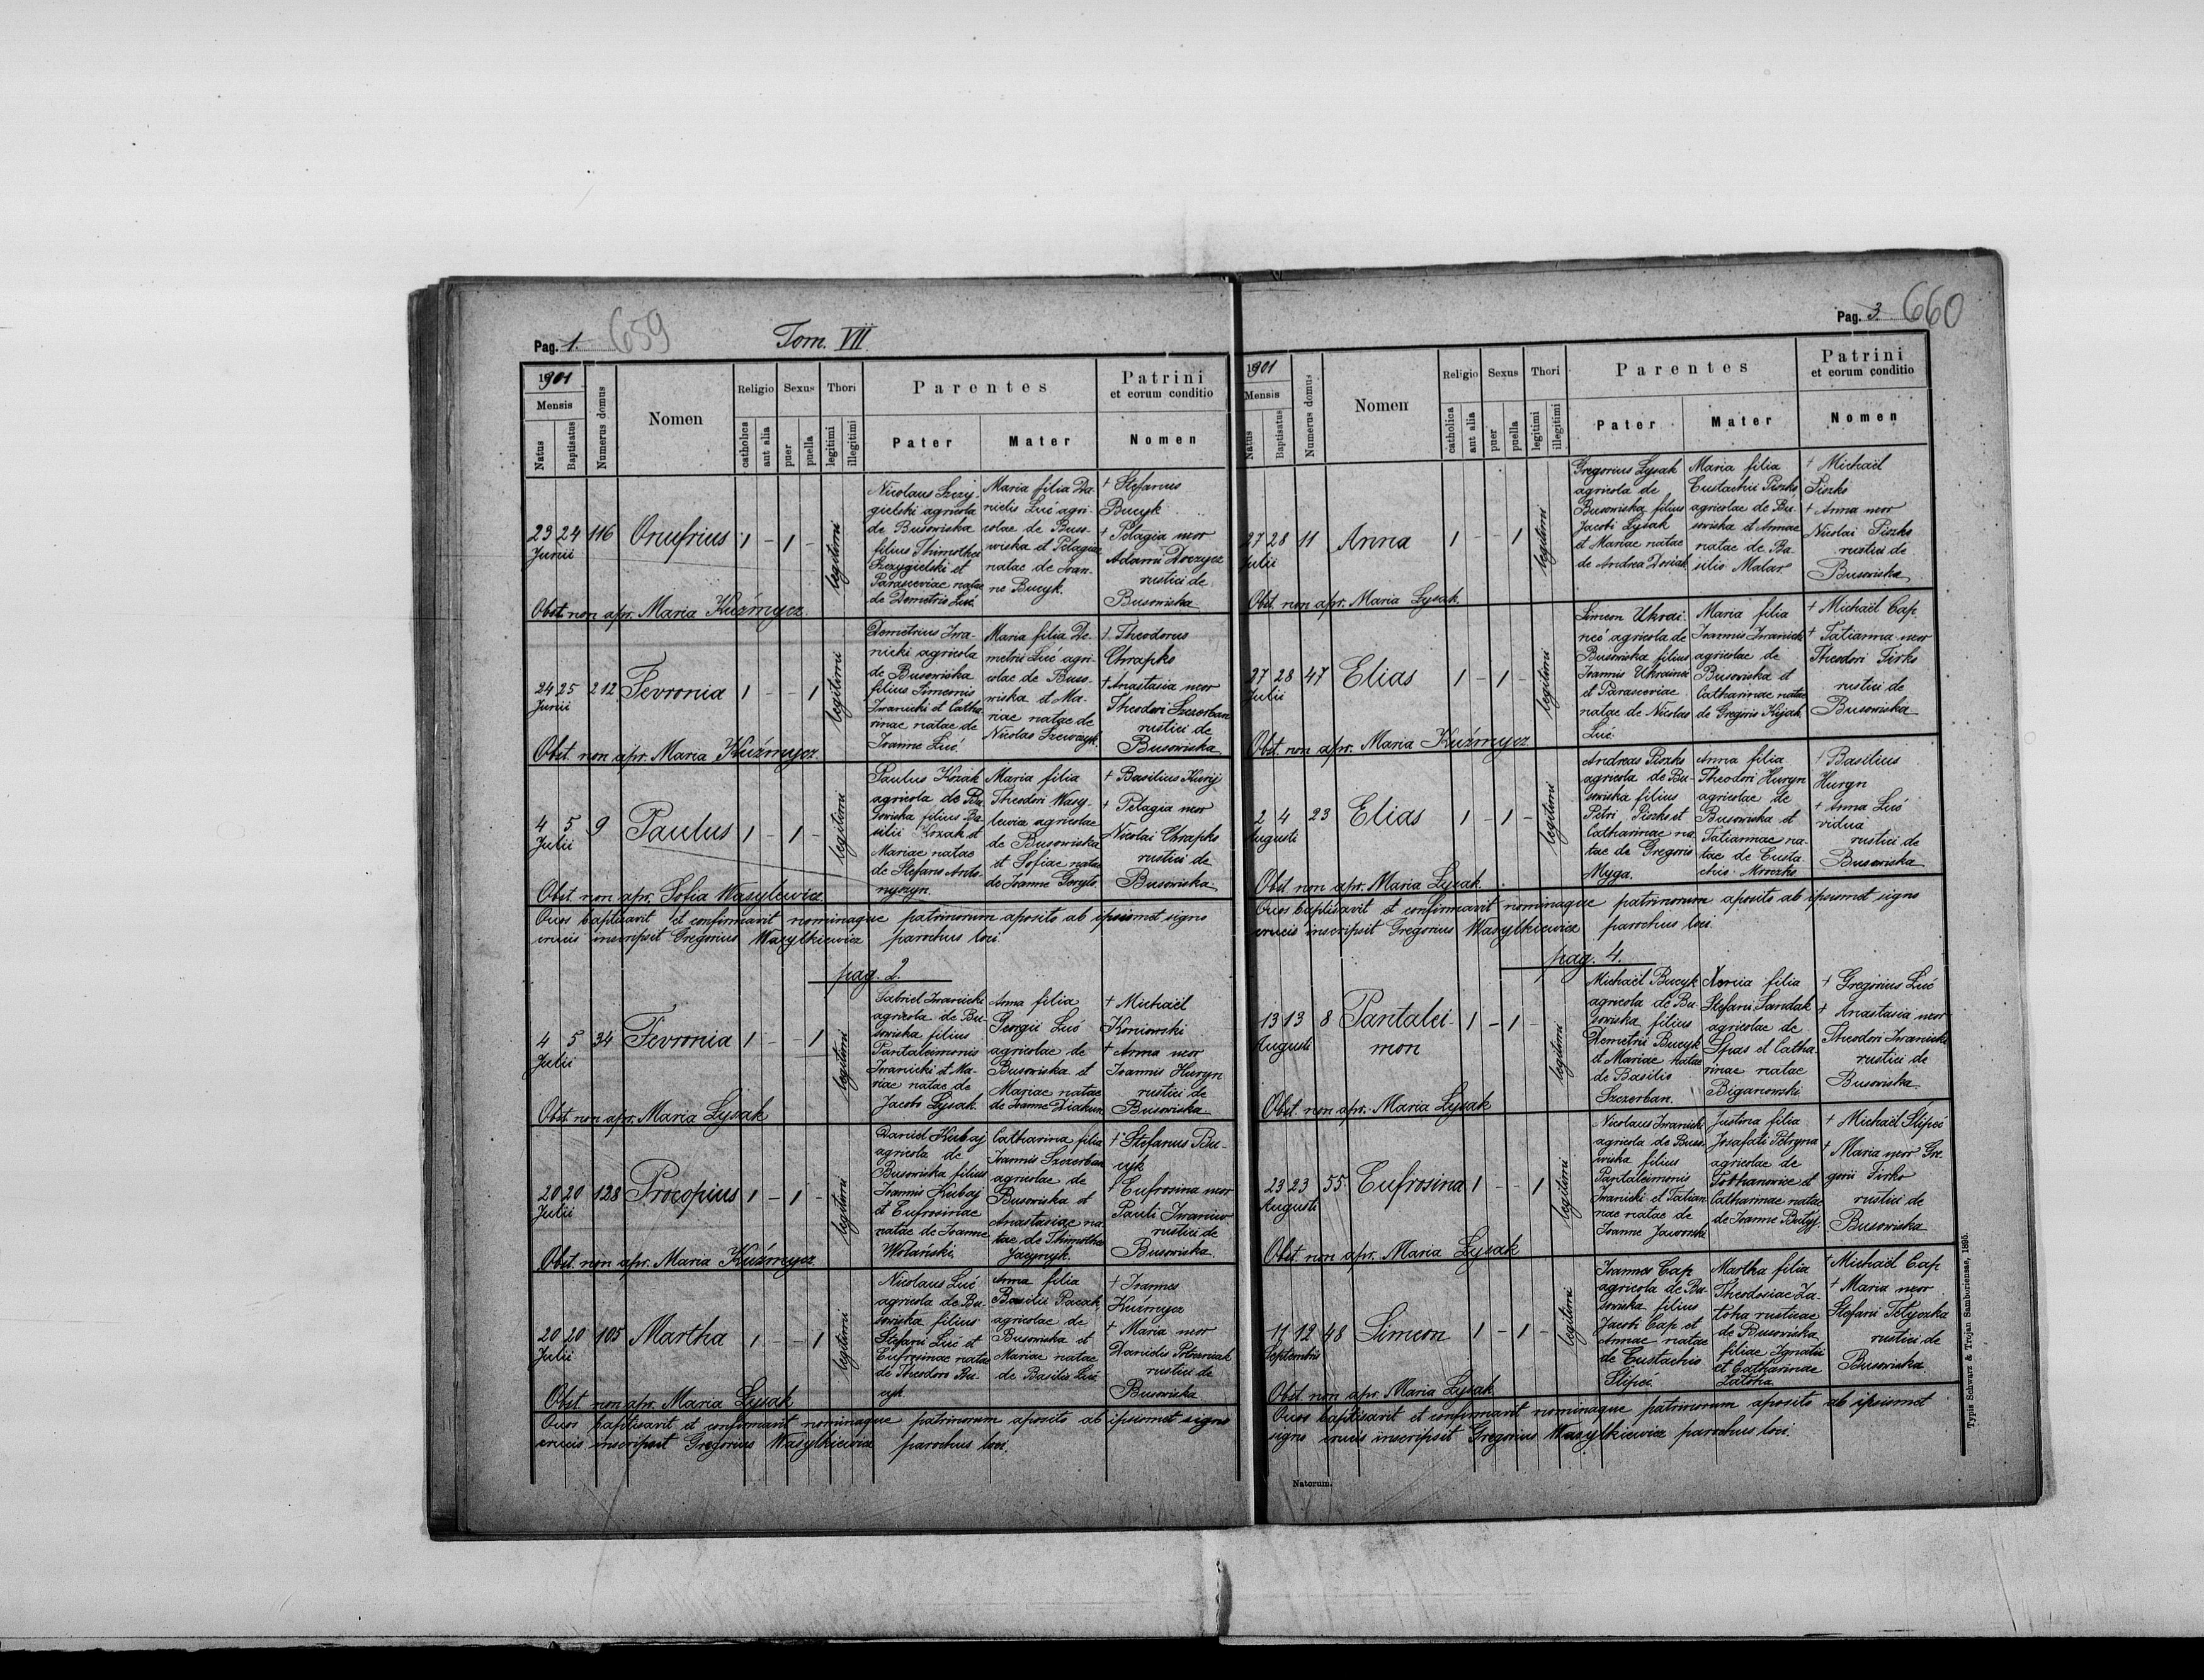 Pag. 1. 659
Tom. VII
1901
Mensis
Natus
Baptisatus
Numerus domus
Nomen
Religio
catholica
aut alia
Sexus
puer
puella
Thori
legitimi
illegitimi
Parentes
Pater
Mater
Patrini
et eorum conditio
Nomen
23 24 116 Onufrius 1 - 1 -
Junii
legitimi
Nicolaus Szczy-
gielski agricola
de Busowiska
filius Thimothei
Szczygielski et
Parasceviae natae
de Demetrio Luć.
Maria filia Da-
nielis Luć agri-
colae de Buso-
wiska et Pelagiae
natae de Joan-
ne Bucyk.
† Stefanus
Bucyk
† Pelagia uxor
Adami
rustici de
Busowiska
Obst. non apr. Maria Kuźmycz.
24 25 212 Fevronia 1 - - 1
Junii
legitimi
Demetrius Iwa-
nicki agricola
de Busowiska
filius Simeonis
Iwanicki et Catha-
rinae natae de
Joanne Luć.
Maria filia De-
metrii Luć agri-
colae de Buso-
wiska et Ma-
riae natae de
Nicolao Szewczyk.
† Theodorus
Chrapko
† Anastasia uxor
Theodori Szczerban
rustici de
Busowiska
Obst. non apr. Maria Kuźmycz.
4 5 9 Paulus 1 - 1 -
Julii
legitimi
Paulus Kozak
agricola de Bu-
sowiska filius Ba-
silii Kozak et
Mariae natae
de Stefano Anto-
nyszyn.
Maria filia
Theodori Wasy-
lewicz agricolae
de Busowiska
et Sofiae natae
de Joanne
† Basilius Kurij
† Pelagia uxor
Nicolai Chrapko
rustici de
Busowiska
Obst. non apr. Sofia Wasylewicz.
Quos baptisavit et confirmavit nominaque patrinorum aposito ab ipsismet signo
crucis inscripsit Gregorius Wasylkiewicz parochus loci.
pag. 2.
4 5 34 Fevronia 1 - - 1
Julii
legitimi
Gabriel Iwanicki
agricola de Bu-
sowiska filius
Pantaleimonis
Iwanicki et Ma-
riae natae de
Jacobo Łysak.
Anna filia
Georgii Luć
agricolae de
Busowiska et
Mariae natae
de Joanne Diakun.
† Michaël
Koniowski
† Anna uxor
Joannis Huryn
rustici de
Busowiska
Obst. non apr. Maria Łysak
20 20 128 Procopius 1 - 1 -
Julii
legitimi
Daniel Kubaj
agricola de
Busowiska filius
Joannis Kubaj
et Eufrosinae
natae de Joanne
Wolański.
Catharina filia
Joannis Szczerban
agricolae de
Busowiska et
Anastasiae na-
tae de Thimotheo
Jacynyk.
† Stefanus Bu-
cyk
† Eufrosina uxor
Pauli Iwaniw
rustici de
Busowiska.
Obst. non apr. Maria Kuźmycz.
20 20 105 Martha 1 - - 1
Julii
legitimi
Nicolaus Luć
agricola de Bu-
sowiska filius
Stefani Luć et
Eufrosinae natae
de Theodoro Bu-
cyk.
Anna filia
Basilii
agricolae de
Busowiska et
Mariae natae
de Basilio Luć
† Joannes
Kuźmycz
† Maria uxor
Danielis
rustici de
Busowiska
Obst. non apr. Maria Łysak
Quos baptisavit et confirmavit nominaque patrinorum aposito ab ipsismet signo
crucis inscripsit Gregorius Wasylkiewicz parochus loci.
Pag. 3. 660
1901
Mensis
Natus
Baptisatus
Numerus domus
Nomen
Religio
catholica
aut alia
Sexus
puer
puella
Thori
legitimi
illegitimi
Parentes
Pater
Mater
Patrini
et eorum conditio
Nomen
27 28 11 Anna 1 - - 1
Julii
legitimi
Gregorius Łysak
agricola de
Busowiska filius
Jacobi Łysak
et Mariae natae
de Andrea
Maria filia
Eustachii Piszko
agricolae de Bu-
sowiska et Annae
natae de Ba-
silio Malar
† Michaël
Piszko
† Anna uxor
Nicolai Piszko
rustici de
Busowiska
Obst. non apr. Maria Łysak.
27 28 47 Elias 1 - 1 -
Julii
legitimi
Simeon Ukrai-
neć agricola de
Busowiska filius
Joannis Ukraineć
et Parasceviae
natae de Nicolao
Luć.
Maria filia
Joannis Iwanicki
agricolae de
Busowiska et
Catharinae natae
de Gregorio Kijak
† Michaël Cap.
† Tatianna uxor
Theodori Firko
rustici de
Busowiska
Obst. non apr. Maria Kuźmycz.
2 4 23 Elias 1 - 1 -
Augusti
legitimi
Andreas Piszko
agricola de Bu-
sowiska filius
Petri Piszko et
Catharinae na-
tae de Gregorio
Myga.
Anna filia
Theodori Huryn
agricolae de
Busowiska et
Tatiannae na-
tae de Eusta-
chio Mroczko
† Basilius
Huryn
† Anna Luć
vidua
rustici de
Busowiska
Obst non apr. Maria Łysak.
Quos baptisavit et confirmavit nominaque patrinorum aposito ab ipsismet signo
crucis inscripsit Gregorius Wasylkiewicz parochus loci.
pag. 4.
13 13 8 Pantalei- 1 - 1 -
Augusti mon
legitimi
Michaël Bucyk
agricola de Bu-
sowiska filius
Demetrii Bucyk
et Mariae natae
de Basilio
Szczerban.
Maria filia
Stefani Sandak
agricolae de
Spas et Catha-
rinae natae
Biganowski.
† Gregorius Luć
† Anastasia uxor
Theodori Iwanicki
rustici de
Busowiska
Obst. non apr. Maria Łysak
23 23 55. Eufrosina 1 - - 1
Augusti
legitimi
Nicolaus Iwanicki
agricola de Buso-
wiska filius
Pantaleimonis
Iwanicki et Tatian-
nae natae de
Joanne Jaworski
Justina filia
Josafati Petryna
agricolae de
et
Catharinae natae
de Joanne
† Michaël Slipeć
† Maria uxor Gre-
gorii Firko
rustici de
Busowiska
Obst. non apr. Maria Łysak
11 12 48 Simeon 1 - 1 -
Septembris
legitimi
Joannes Cap
agricola de Bu-
sowiska filius
Jacobi Cap et
Annae natae
de Eustachio
Slipeć.
Martha filia
Theodosiae Za-
toha rusticae
de Busowiska
filiae Ignatii
et Catharinae
Zatoha.
† Michaël Cap
† Maria uxor
Stefani
rustici de
Busowiska.
Obst. non apr. Maria Łysak.
Quos baptisavit et confirmavit nominaque patrinorum aposito ab ipsismet
signo crucis inscripsit Gregorius Wasylkiewicz parochus loci.
Natorum.
Typis Schwarz & Trojan Samboriensae, 1895.